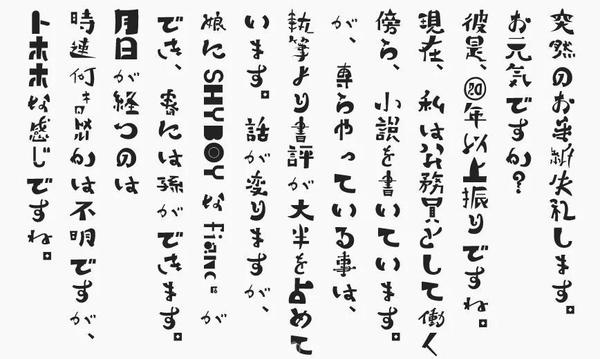 突然のお手紙失礼します。
お元気ですか?
彼是、⑳年以上振りですね。
現在、私は公務員として働く
傍ら、小説を書いています
が、専らやっている事は、
執筆より書評が大半を占めて
います。話が変りますが、
娘に SHYBOY な fiance が
でき、春には孫ができます。
月日が経つのは
時速何かは不明ですが、
トホホな感じですね。